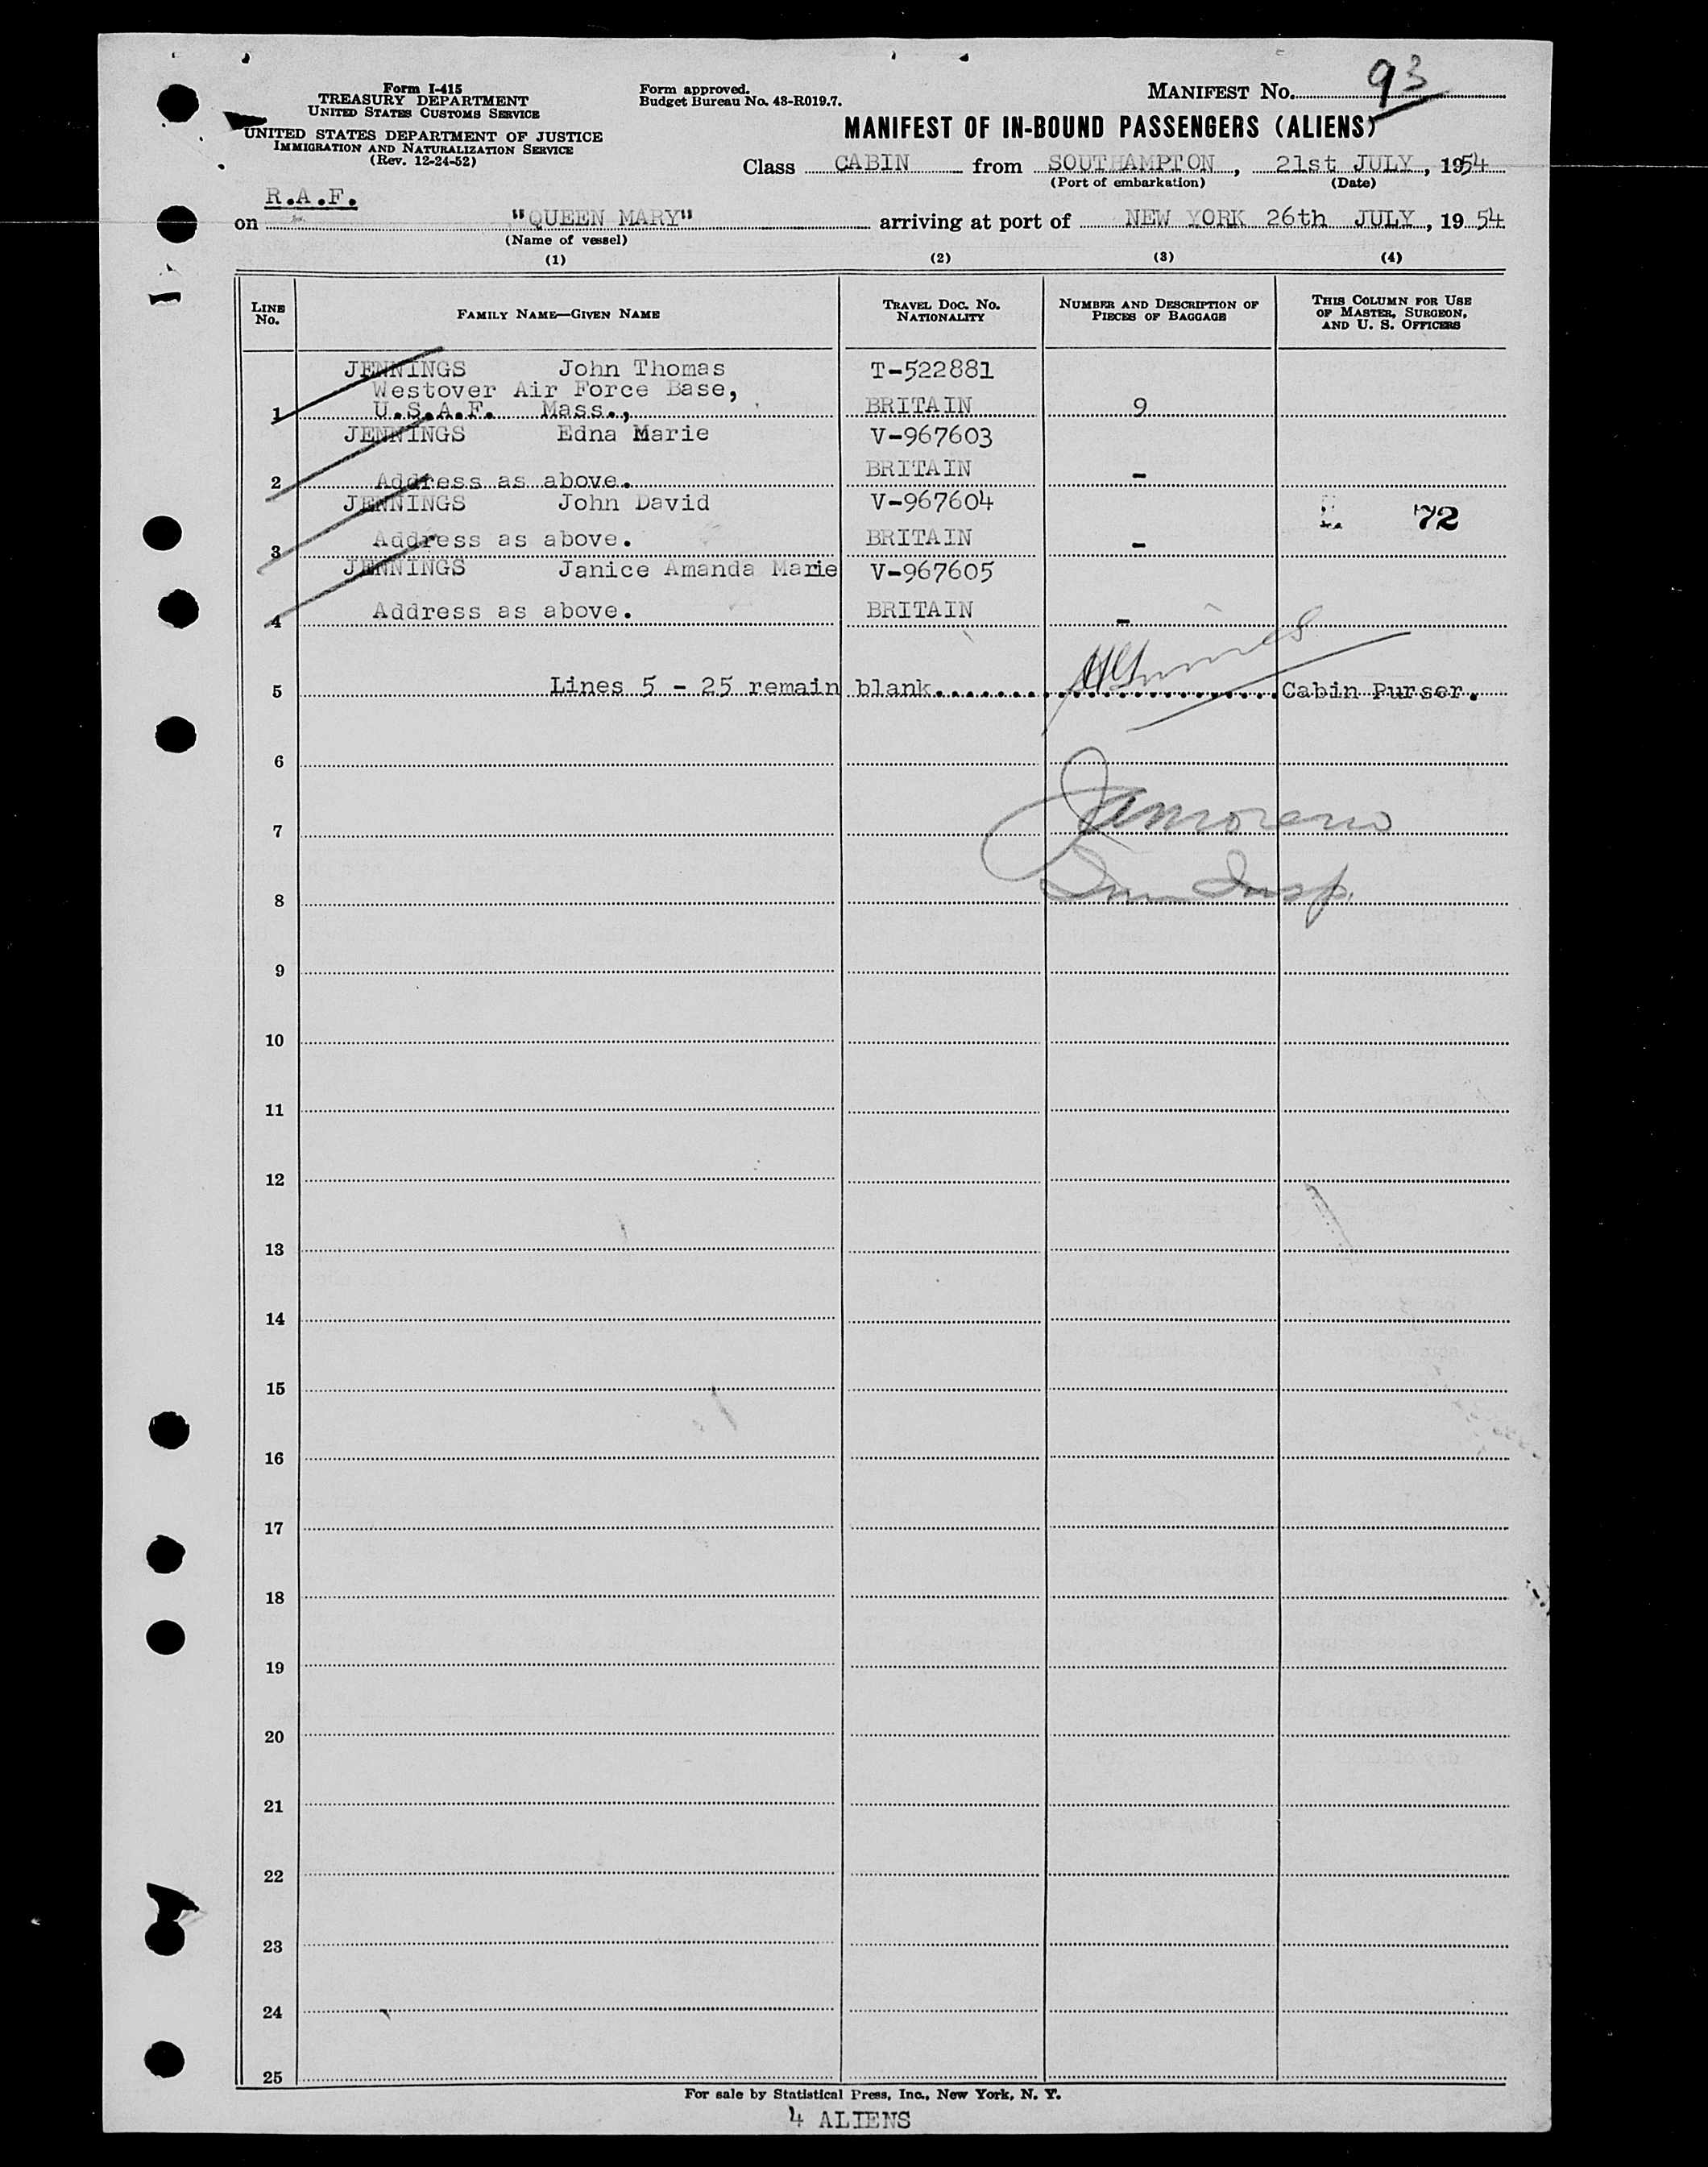 Form I-415
TREASURY DEPARTMENT
UNITED STATES CUSTOMS SERVICE
UNITED STATES DEPARTMENT OF JUSTICE
IMMIGRATION AND NATURALIZATION SERVICE
(Rev. 12-24-52)
Form approved.
Budget Bureau No. 43-R019.7.
MANIFEST No. 93
MANIFEST OF IN-BOUND PASSENGERS (ALIENS)
Class CABIN from SOUTHAMPTON, 21st JULY, 1954
(Port of embarkation) (Date)
R.A.F.
on "QUEEN MARY" arriving at port of NEW YORK 26th JULY, 19 54
(Name of vessel)
(1) (2) (3) (4)
LINE No. FAMILY NAME—GIVEN NAME TRAVEL DOC. NO. NATIONALITY NUMBER AND DESCRIPTION OF PIECES OF BAGGAGE THIS COLUMN FOR USE OF MASTER, SURGEON, AND U. S. OFFICERS
JENNINGS John Thomas T-522881
Westover Air Force Base,
1 U.S.A.F. Mass., BRITAIN 9
JENNINGS Edna Marie V-967603
BRITAIN
2 Address as above. -
JENNINGS John David V-967604 72
3 Address as above. BRITAIN -
JENNINGS Janice Amanda Marie V-967605
4 Address as above. BRITAIN -
5 Lines 5 - 25 remain blank. Cabin Purser.
6
7
8 Imm Insp.
9
10
11
12
13
14
15
16
17
18
19
20
21
22
23
24
25
For sale by Statistical Press, Inc., New York, N. Y.
4 ALIENS